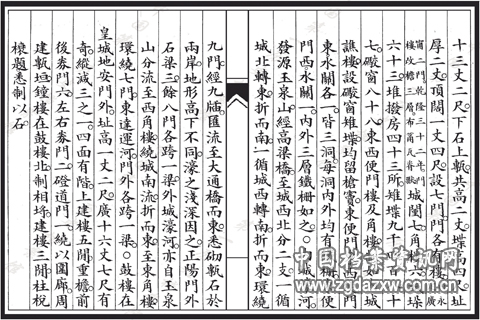 十三丈二尺下石上甎共高二丈堞高四尺址
厚二丈頂濶一丈四尺設七門門各有樓
樓改檐三層布筩瓦脊獸
城闉七角樓六城垜
六十三堆撥房四十三所雉堞九千
七礮窗八十八東西便門樓及角樓
譙樓設礮窗雉堞均留槍竇東便門西
東水關各一皆三洞每洞內外均有鐵柵
門西水關一內外三層鐵柵如之○城河
發源玉泉山經高梁橋至城西北分二支一循
城北轉東折而南一循城西轉南折而東環繞
九門經九牐匯流至大通橋而東悉砌甎石於
兩岸地形高下不同濠之淺深因之正陽門外
石梁三餘八門各跨一梁外城濠河亦自玉泉
山分流至西角樓繞城南流折而東至東角樓
環繞七門東達運河門外各跨一梁○鼓樓在
皇城地安門外址高一丈二尺廣十六丈七尺有
奇縱減三之一四面有階上建樓五閒重檐前
後劵門六左右劵門二磴道門一繞以圍廊周
建甎垣鐘樓在鼓樓北制相埓建樓三閒柱梲
榱題悉制以石
中国档案资讯网
www.zgdazxw.com.cn